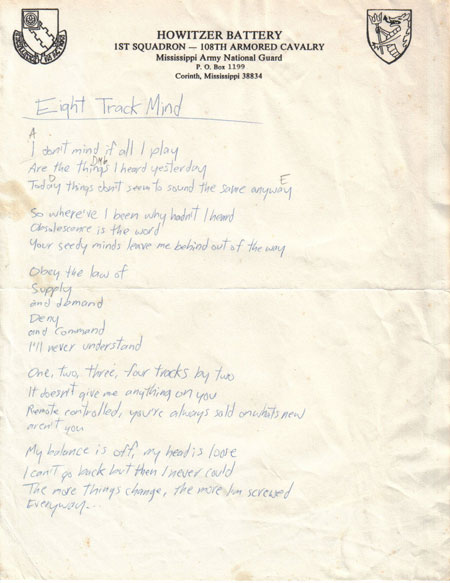 HOWITZER BATTERY
1ST SQUADRON — 108TH ARMORED CAVALRY
Mississippi Army National Guard
P. O. Box 1199
Corinth, Mississippi 38834
Eight Track Mind
A
I don't mind if all I play
Are the things I heard yesterday
D
E
Today things don't seem to sound the same anyway
So where've I been why hadn't I heard
Obsolescence is the word
Your seedy minds leave me behind out of the way
Obey the law of
Supply
and demand
Deny
and command
I'll never understand
One, two, three, four tracks by two
It doesn't give me anything on you
Remote controlled, you're always sold on whats new
aren't you
My balance is off, my head is loose
I can't go back but then I never could
The more things change, the more I'm screwed
Everyway...